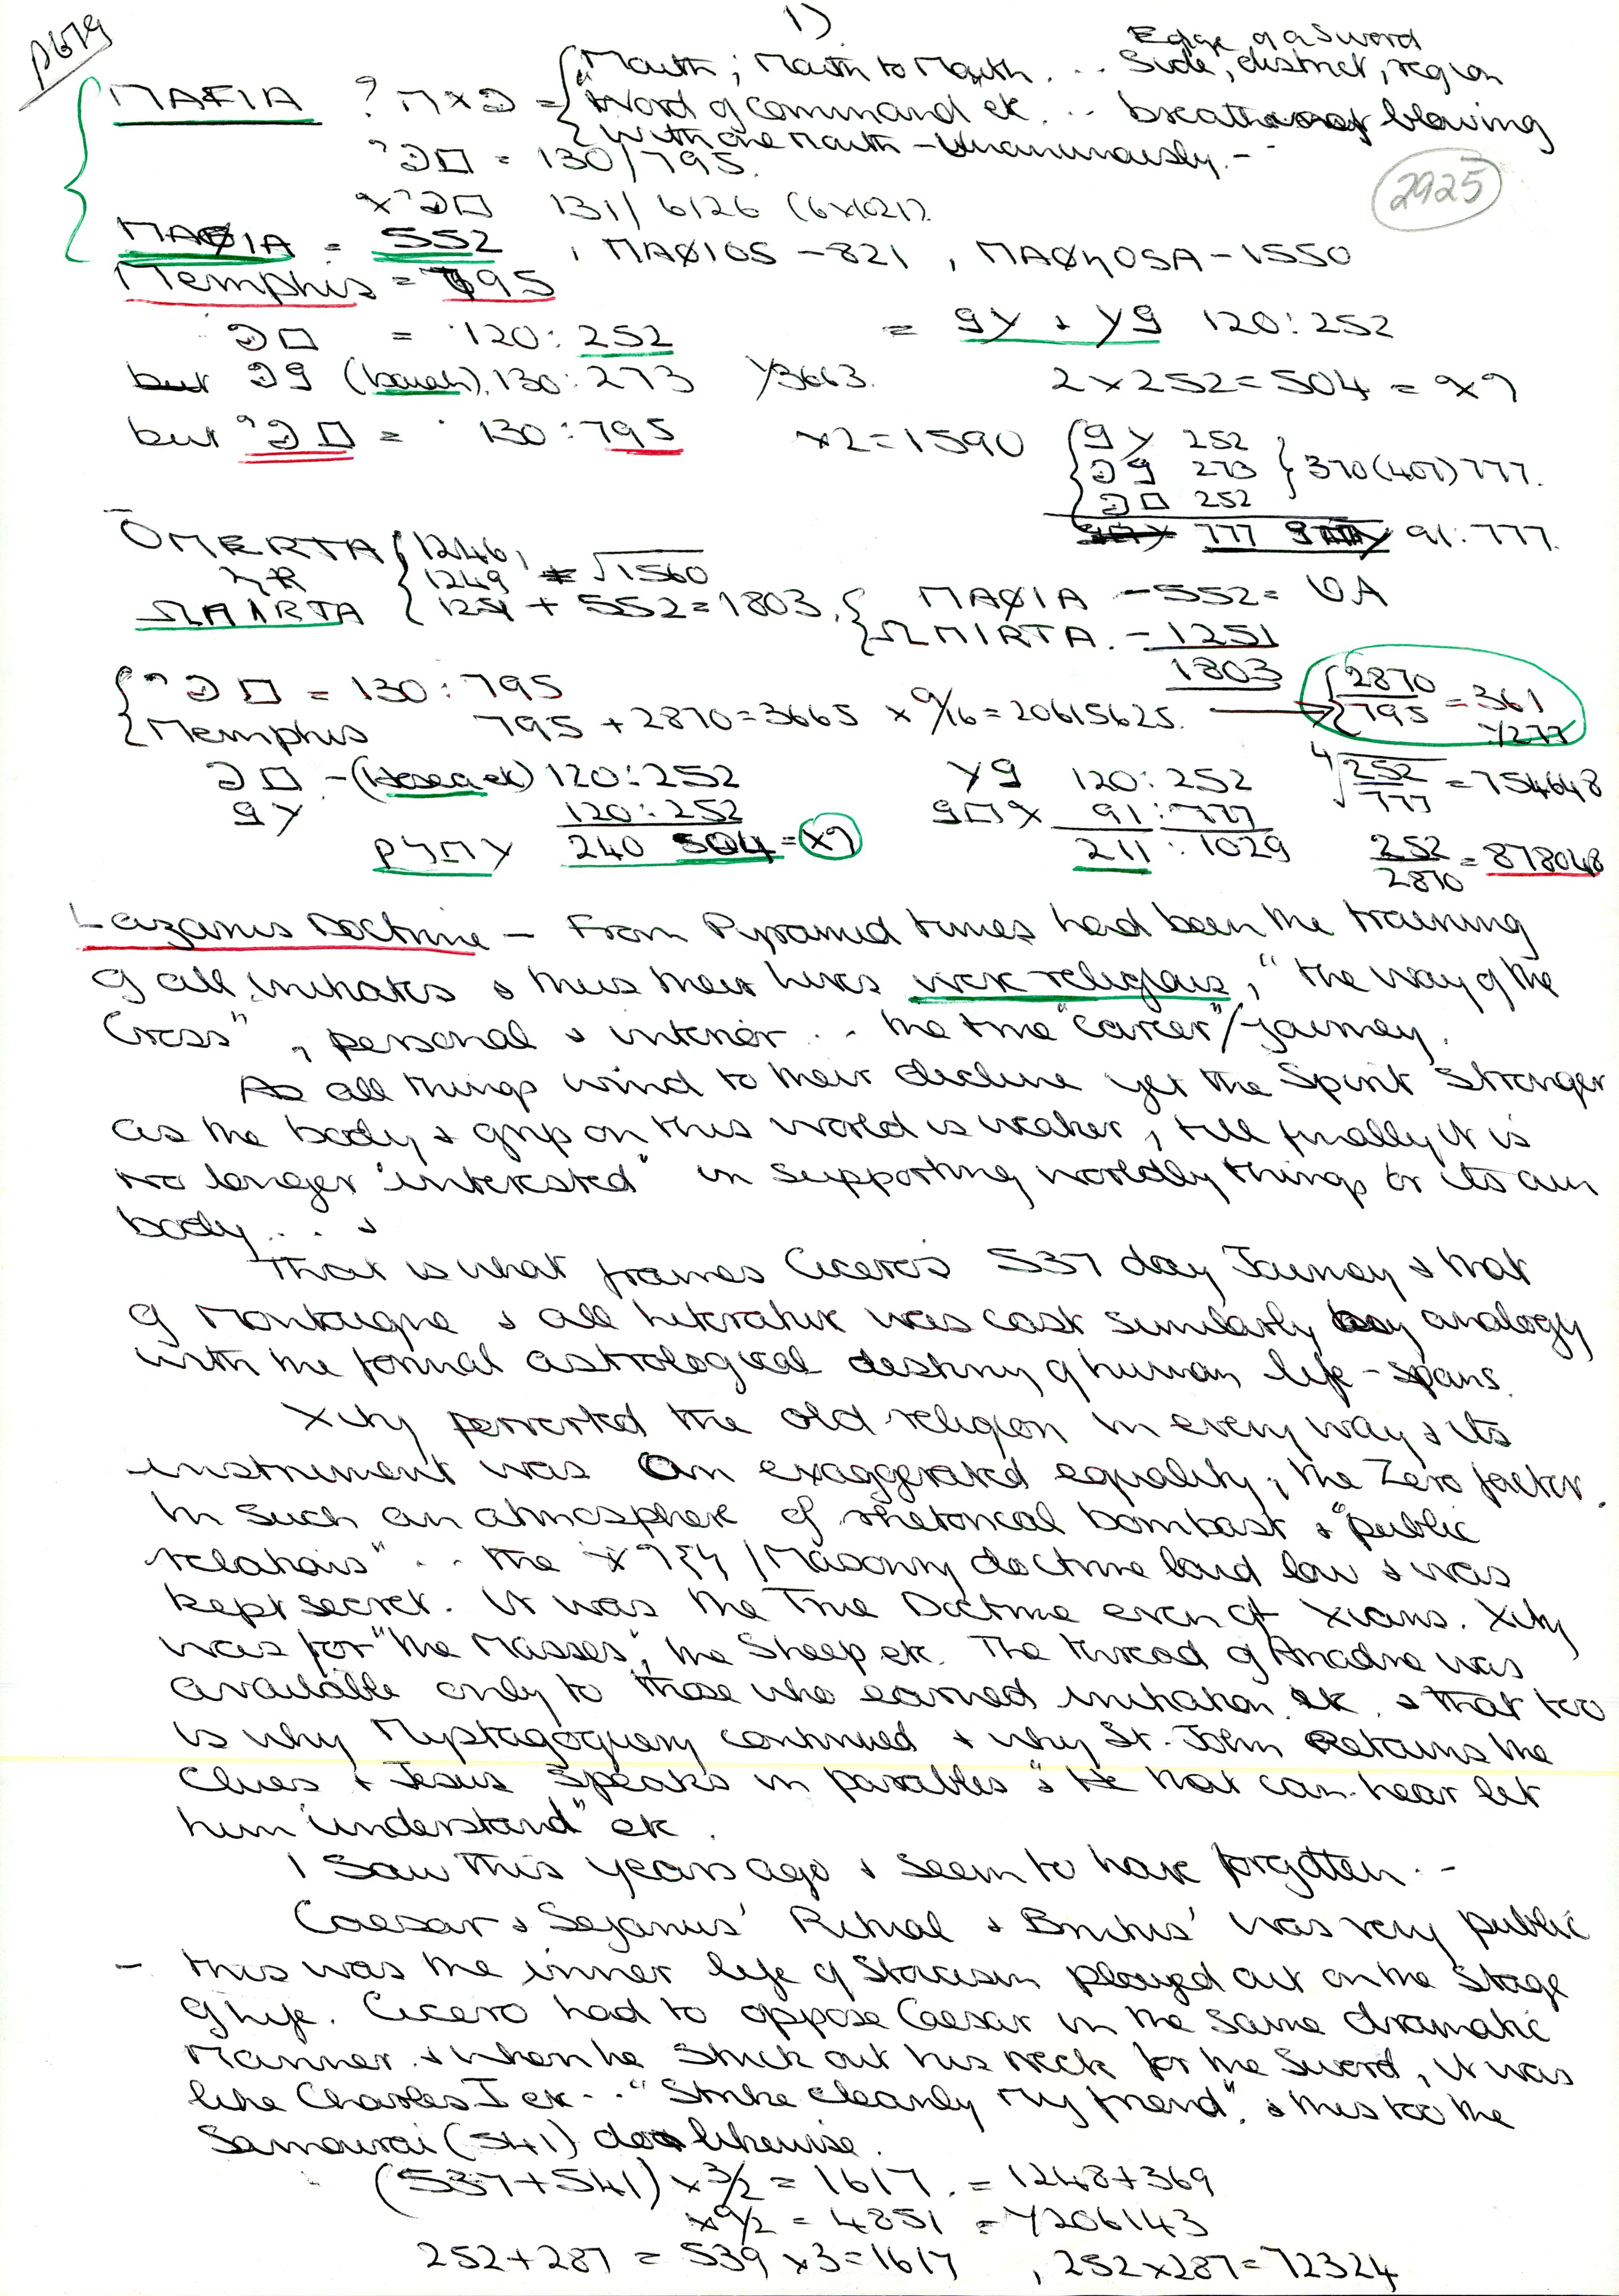 1)
p679
Edge of a Sword
{Mouth; Mouth to Mouth... Side, district, region
MAFIA ? = {"Word of command etc... breath or blowing
{With one Mouth - Unanimously. -
= 130/795.
2925
131/6126 (6x1021).
MAØIA = 552, MAØIOS - 821, MAØηOSA - 1550
Memphis = 795
= 120:252 = 120:252
but (barah). 130:273 γ3663. 2x252=504 =
but = 130:795 x2=1590 { 252
{ 273 } 370(407)777.
{ 252
777 91:777.
OMERTA {1246,
{1249 √1560
ΩMIRTA {1251 + 552=1803, { MAØIA - 552=
{ΩMIRTA. - 1251
1803
{ = 130:795 2870/795 = 361
{Memphis 795 + 2870=3665 x 9/16=20615625. γ277
- (Hosea etc) 120:252 120:252 4√252/777 = 754648
120:252 91:777
240 504 = 211:1029 252/2870 = 878048
Lazarus Doctrine - From Pyramid times had been the training
of all initiates & thus their lives were religious, "the way of the
Cross", personal & interior... the true "career"/journey.
As all things wind to their decline yet the Spirit Stronger
as the body & grip on this world is weaker, till finally it is
no longer "interested" in supporting worldly things or its own
body... &
That is what frames Cicero's 537 day Journey & that
of Montaigne & all literature was cast similarly by analogy
with the formal astrological destiny of human life-spans.
Xity perverted the old religion in every way & its
instrument was an exaggerated equality, the Zero factor.
In such an atmosphere of rhetorical bombast & "public
relations"... the /Masonry doctrine laid low & was
kept secret. It was the True Doctrine even of Xians. Xity
was for "the Masses", the Sheep etc. The thread of Ariadne was
available only to those who earned initiation etc. & that too
is why Mystagoguery continued & why St. John Retains the
Clues & Jesus Speaks in parables "& he that can hear let
him understand" etc.
I Saw this years ago & seem to have forgotten..-
Caesar & Sejanus' Ritual & Brutus' was very public
- this was the inner life of Stoicism played out on the Stage
of life. Cicero had to oppose Caesar in the same dramatic
Manner & when he Stuck out his neck for the Sword, it was
like Charles I etc.. "Strike cleanly my friend". & thus too the
Samourai (541) do likewise.
(537+541) x 3/2 = 1617. = 1248+369
x 9/2 = 4851 = γ206143
252+287 = 539 x3=1617, 252x287=72324